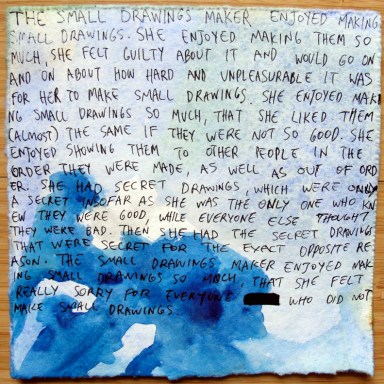 THE SMALL DRAWINGS MAKER ENJOYED MAKING
SMALL DRAWINGS. SHE ENJOYED MAKING THEM SO
MUCH, SHE FELT GUILTY ABOUT IT AND WOULD GO ON
AND ON ABOUT HOW HARD AND UNPLEASURABLE IT WAS
FOR HER TO MAKE SMALL DRAWINGS. SHE ENJOYED MAKI
NG SMALL DRAWINGS SO MUCH, THAT SHE LIKED THEM
(ALMOST) THE SAME IF THEY WERE NOT SO GOOD. SHE
ENJOYED SHOWING THEM TO OTHER PEOPLE IN THE
ORDER THEY WERE MADE, AS WELL AS OUT OF ORD
ER. SHE HAD SECRET DRAWINGS, WHICH WERE ONLY
A SECRET INSOFAR AS SHE WAS THE ONLY ONE WHO KN
EW THEY WERE GOOD, WHILE EVERYONE ELSE THOUGHT
THEY WERE BAD. THEN SHE HAD THE SECRET DRAWINGS
THAT WERE SECRET FOR THE EXACT OPPOSITE RE
ASON. THE SMALL DRAWINGS MAKER ENJOYED MAK
ING SMALL DRAWINGS SO MUCH, THAT SHE FELT
REALLY SORRY FOR EVERYONE WHO DID NOT
MAKE SMALL DRAWINGS.